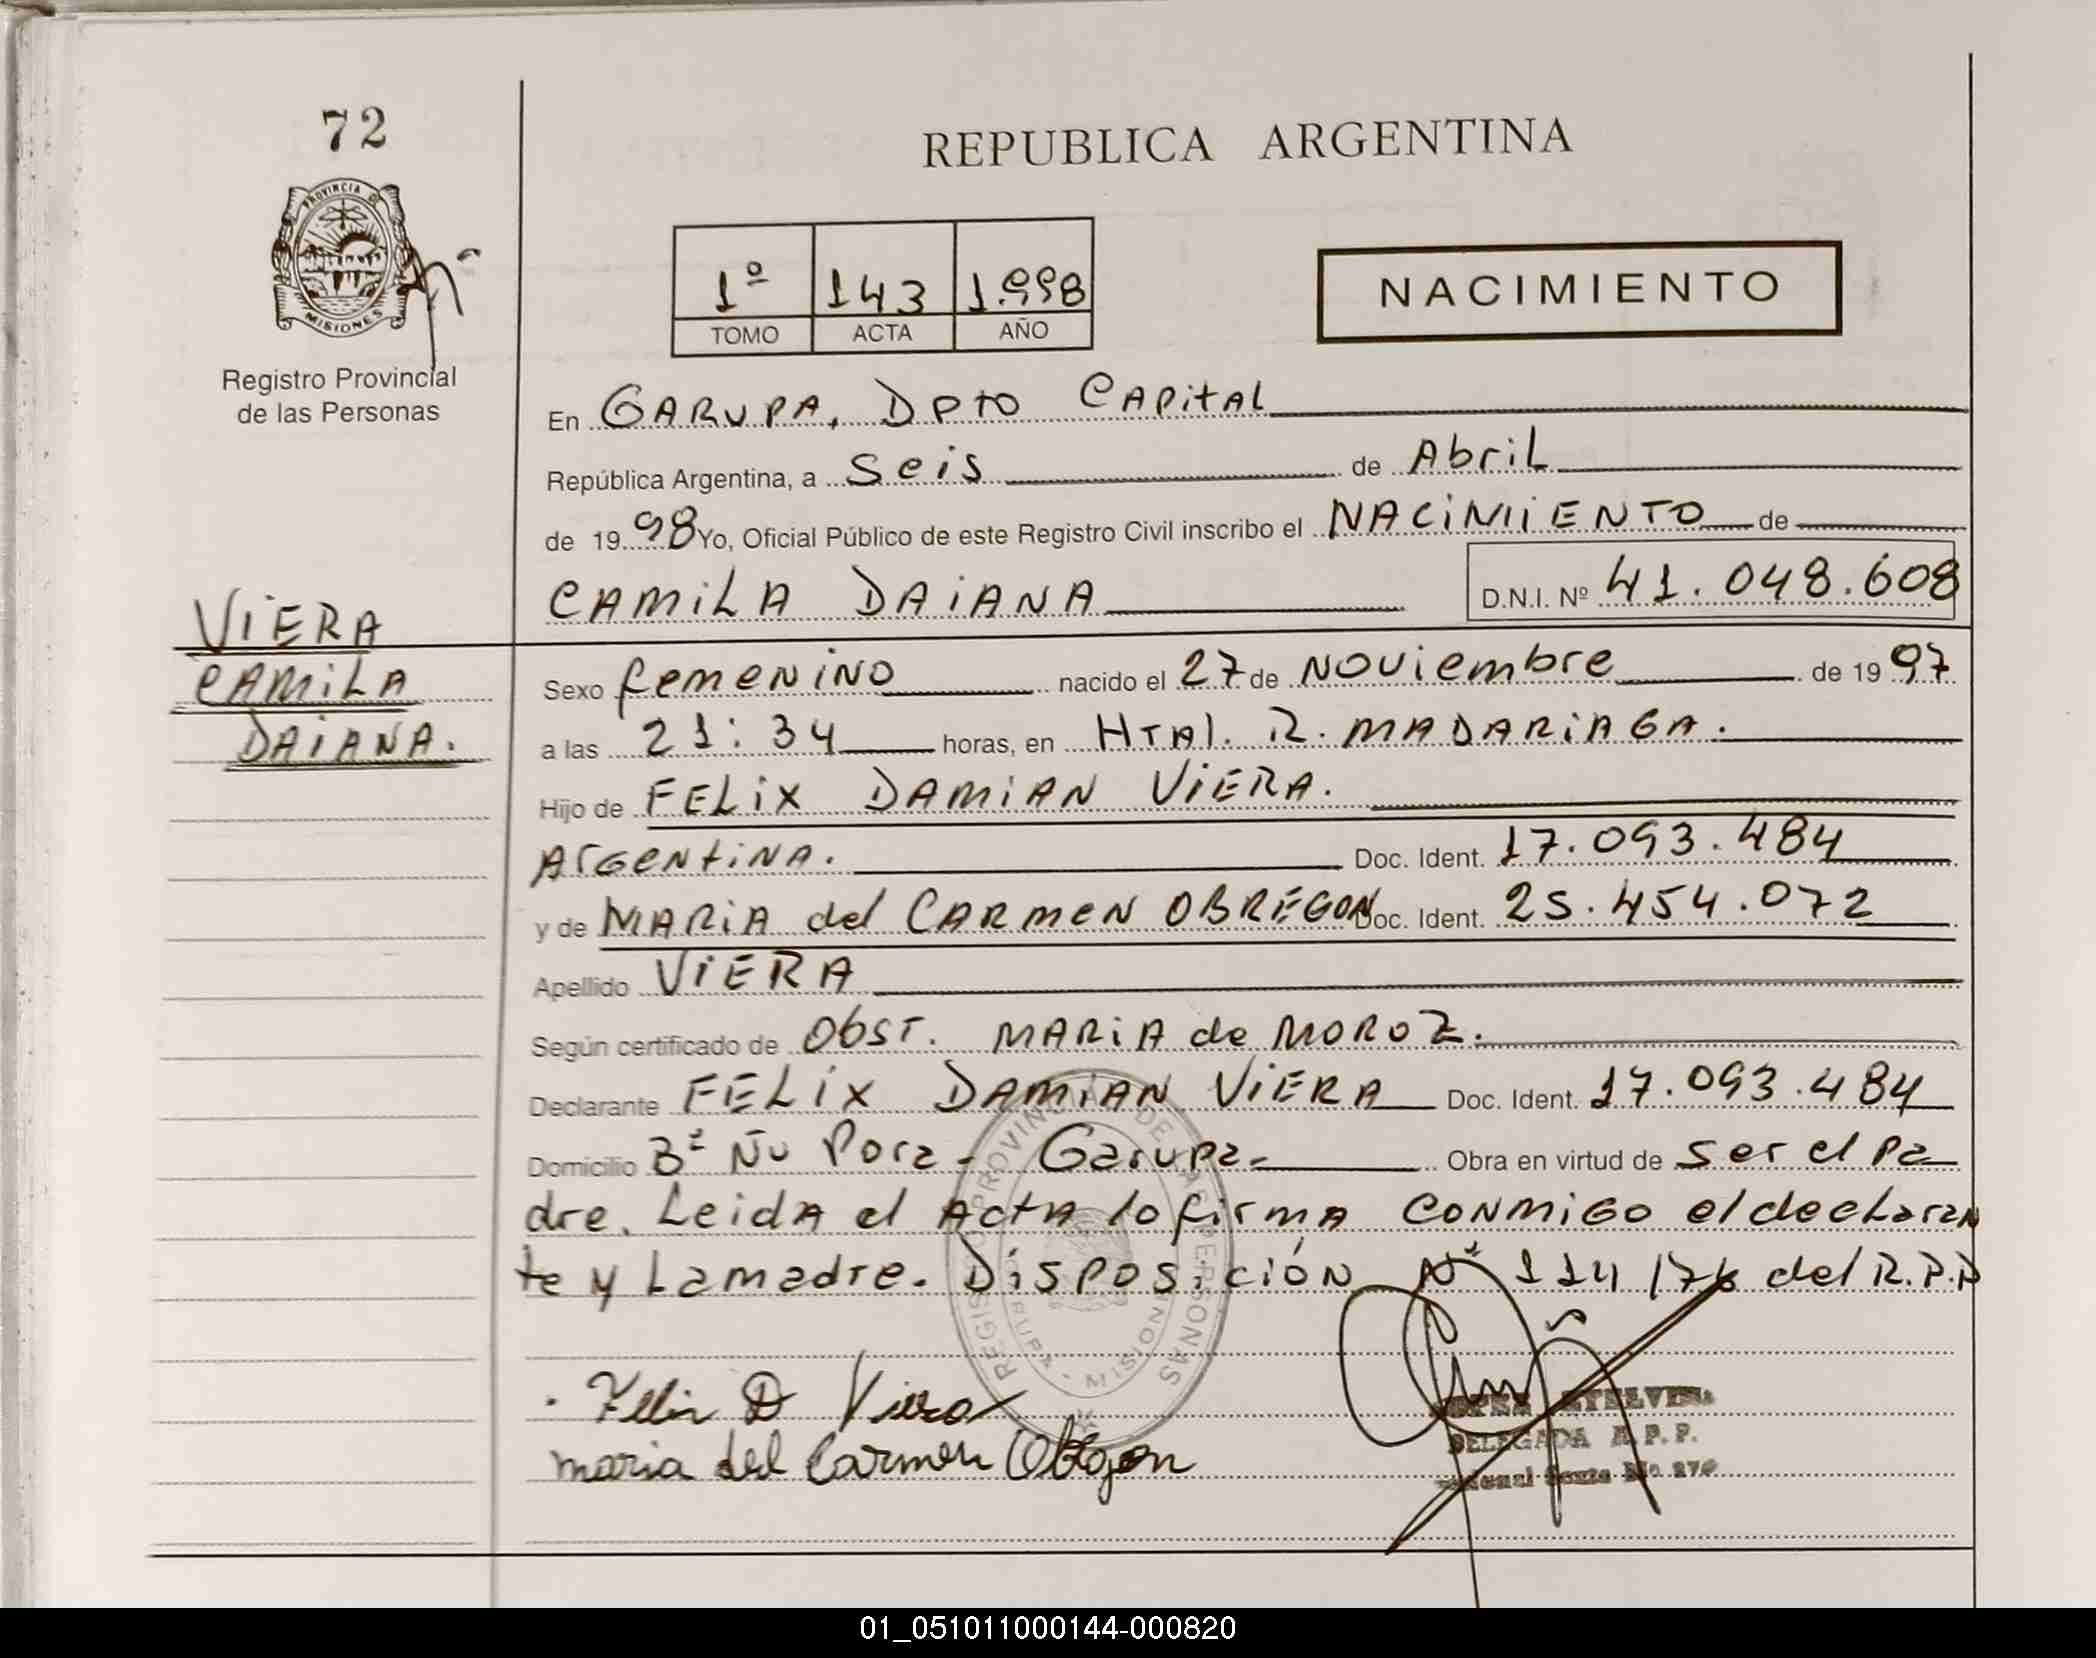 72
PROVINCIA DE
MISIONES
Registro Provincial
de las Personas
REPUBLICA ARGENTINA
1º 143 1.998
TOMO ACTA AÑO
NACIMIENTO
En GARUPA, DPTO CAPITAL
República Argentina, a Seis de Abril
de 1998 Yo, Oficial Público de este Registro Civil inscribo el NACIMIENTO de
CAMILA DAIANA D.N.I. Nº 41.048.608
VIERA
CAMILA
DAIANA.
Sexo femenino nacido el 27 de Noviembre de 1997
a las 21:34 horas, en HTAl. R. MADARIAGA.
Hijo de FELIX DAMIAN VIERA.
Argentina. Doc. Ident. 17.093.484
y de MARIA del CARMEN OBREGON Doc. Ident. 25.454.072
Apellido VIERA
Según certificado de ObST. MARIA de MOROZ.
Declarante FELIX DAMIAN VIERA Doc. Ident. 17.093.484
Domicilio Bº Ñu Pora - Garupa - Obra en virtud de ser el pa
dre. Leida el Acta lo firma conmigo el declaran
te y La madre. Disposición Nº 114/76 del R.P.P
REGISTRO PROVINCIAL DE LAS PERSONAS
MISIONES
Felix D Viera
maria del Carmen Obregon
DELEGADA R.P.P.
01_051011000144-000820